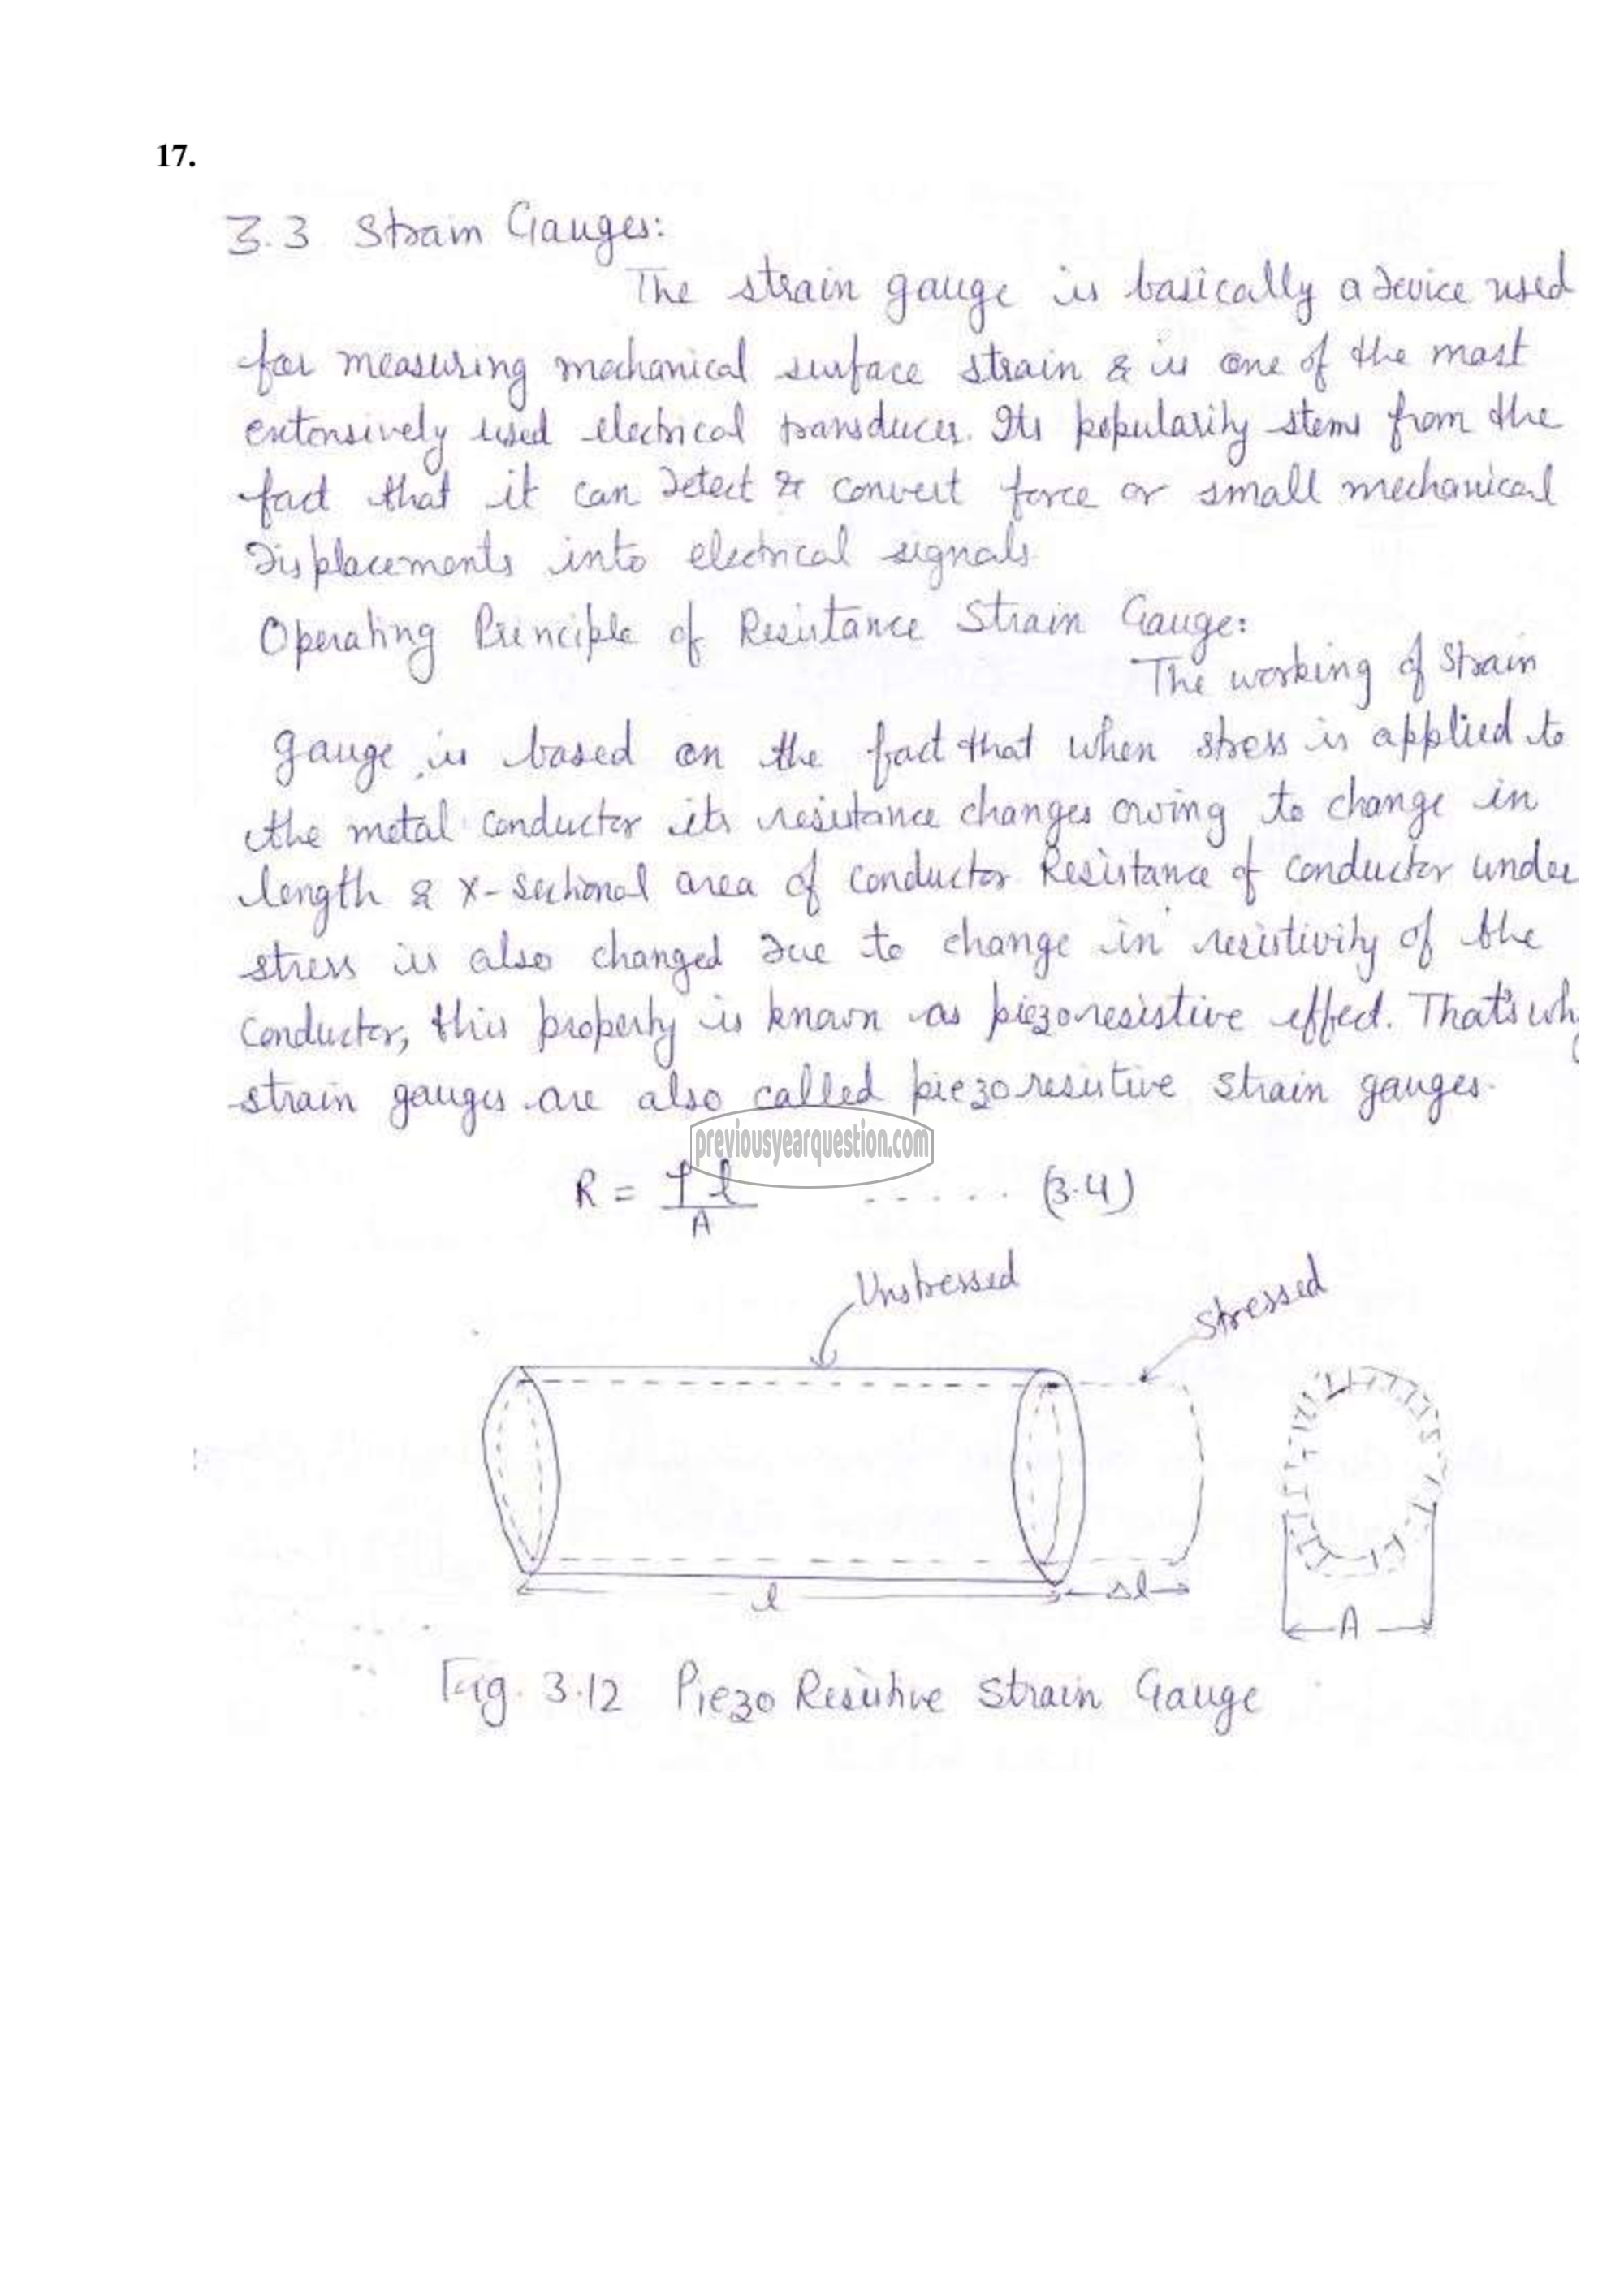 17.
3.3 Strain Gauges:
The strain gauge is basically a device used
for measuring mechanical surface strain & is one of the most
extensively used electrical transducer. Its popularity stems from the
fact that it can detect & convert force or small mechanical
displacements into electrical signals
Operating Principle of Resistance Strain Gauge:
The working of strain
gauge is based on the fact that when stress is applied to
the metal conductor its resistance changes owing to change in
length & x-sectional area of conductor Resistance of conductor under
stress is also changed due to change in resistivity of the
conductor, this property is known as piezoresistive effect. That's why
strain gauges are also called piezoresistive strain gauges.
previousyearquestion.com
R = ρl/A ...... (3.4)
Unstressed
Stressed
l
Δl
A
Fig. 3.12 Piezo Resistive Strain Gauge